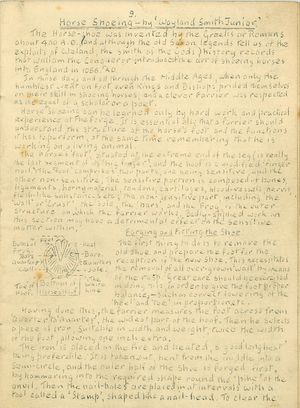 9.
Horse Shoeing - by 'Wayland Smith Junior'
The Horse-shoe was invented by the Greeks or Romans
about 400 A.D. and although the old Saxon legends tell us of the
exploits of Wayland, the smith of the Gods, history records
that William the Conqueror introduced the art of shoeing horses
into England in 1066 A.D.
In those days and through the Middle Ages, when only the
humblest went on foot even Kings and Bishops prided themselves
on their skill in shoeing horses, and a clever Farrier was respected
as the equal of a scholar or a poet.
Horse shoeing can be learned only by hard work and practical
experience at the Forge. It is essential that a farrier should
understand the structure of the horse's foot and the functions
it has to perform, at the same time remembering that he is
working on a living animal.
The horse's foot, situated at the extreme end of the leg is really
the last segment of a big finger, and the hoof is a modified finger
nail. The foot comprises two parts, one being sensitive and the
other non-sensitive. The sensitive portion is composed of bones,
ligaments, horny material, tendons, cartilages, blood-vessels, nerves,
and flesh-like substances etc; the non-sensitive part including the
Wall or 'Crust', the Sole, the 'Bars', and the Frog, is the outer
structure on which the Farrier works. Badly-skilled work in
this section may have a detrimental effect on the sensitive
matter within.
Forging and Fitting the Shoe
The first thing to do is to remove the
old shoe, and prepare the foot for the
reception of the new shoe. This necessitates
the removal of all overgrown wall by means
of the rasp. Great care should be exercised
in doing this, in order to give the foot proper
balance, - such as correct lowering of the
heel and 'toe' in proportionate.
Heel
Bars
Quarter
Wall
The
White
Line
Toe
Bottom of
Horses foot
Having done this, the farrier measures the foot across from
'quarter to quarter', the widest part of the hoof. Then he selects
a piece of iron, suitable in width and weight, twice the width
of the foot allowing one inch extra.
The iron is placed in the fire and heated, a good long heat
being preferable. It is taken out, bent from the middle into a
semi-circle, and the outer half of the shoe is forged first,
by hammering into the required shape round the 'pike' of the
anvil. Then the nail-holes are placed at intervals with a
tool called a 'Stamp', shaped like a nail-head. To clear the